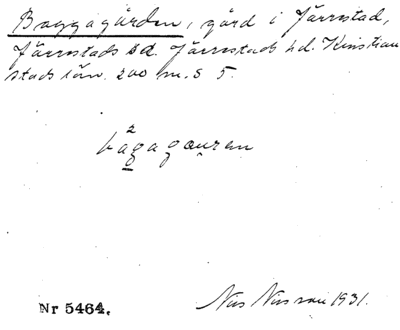 Baggagården, gård i Järrstad,
Järrstads sd. Järrstads hd. Kristian
stads län. 200 m. S 5.
bàgagaụren
Nr 5464.
Nils Nilsson 1931.